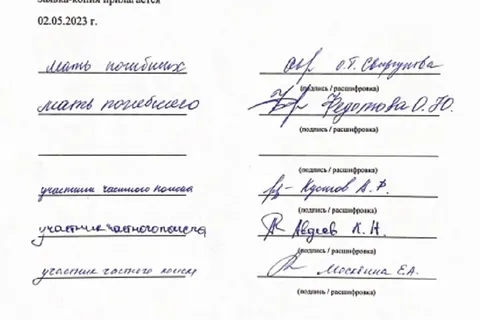 Заявка-копия прилагается
02.05.2023 г.
мать погибших О.Т.
(подпись / расшифровка)
мать погебшего Федотова О.Ю.
(подпись / расшифровка)
(подпись / расшифровка)
участник частного поиска Кустов А.Ф.
(подпись / расшифровка)
участник частного поиска Авдеев К.Н.
(подпись / расшифровка)
участник частого поиска Москвина Е.А.
(подпись / расшифровка)